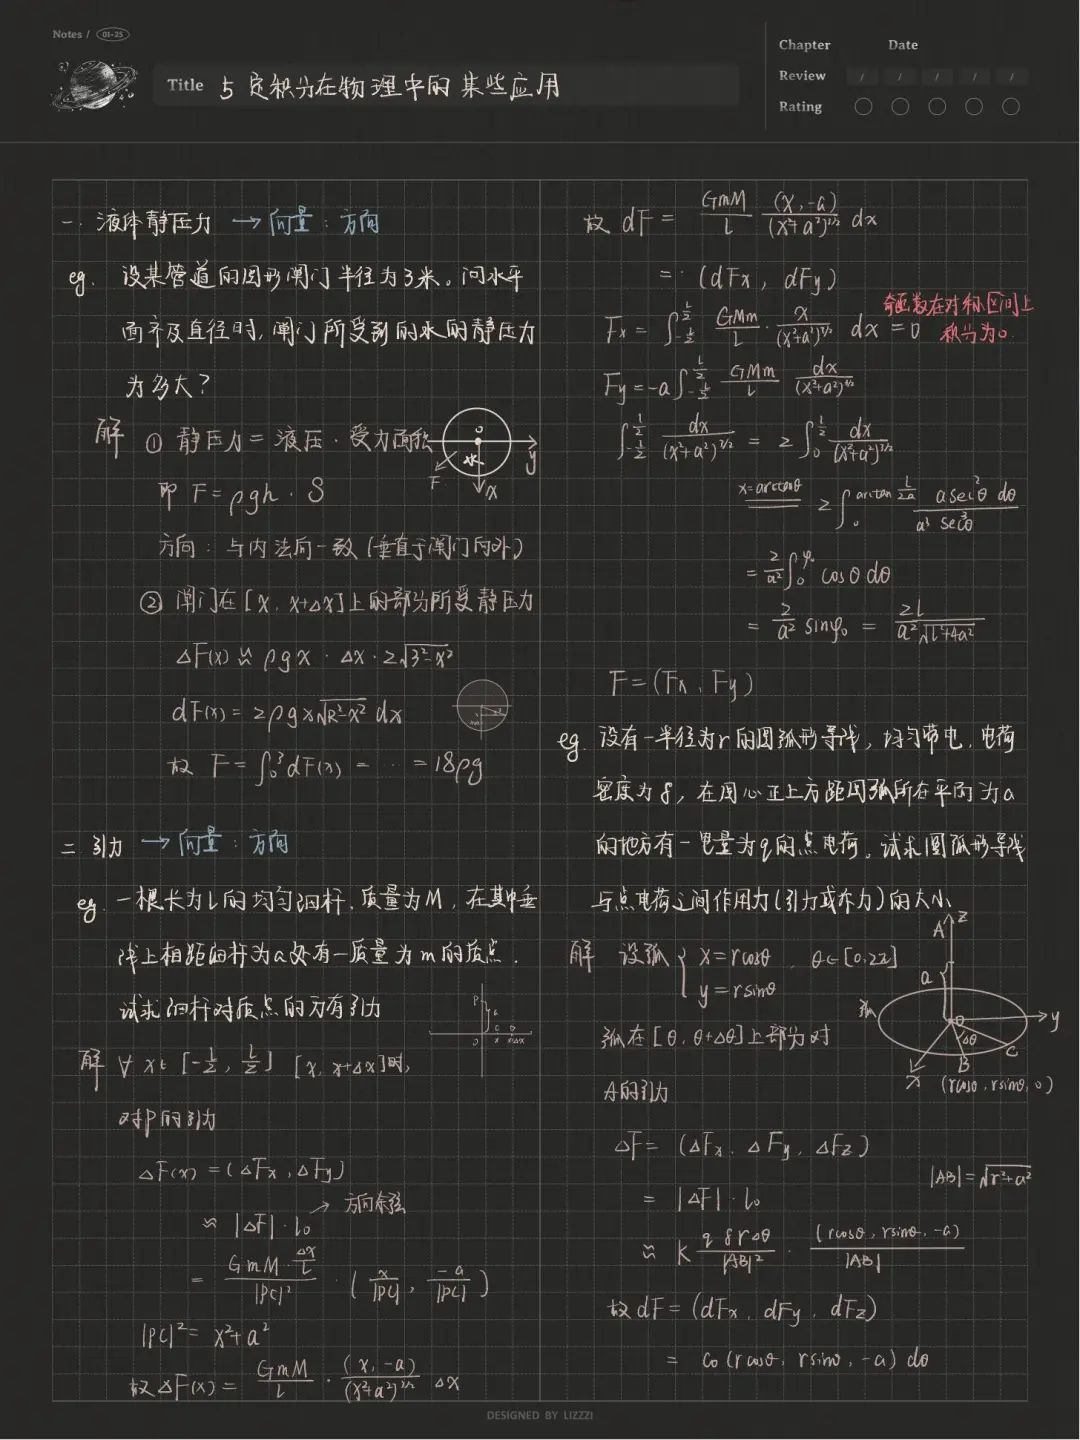 Notes / 01-25
Title 5 定积分在物理中的某些应用
Chapter Date
Review / / / / /
Rating
一. 液体静压力 → 向量：方向
eg. 设某管道的圆形闸门半径为3米。问水平
面齐及直径时，闸门所受到的水的静压力
为多大？
解 ① 静压力 = 液压 · 受力面积
即 F = ρgh · S
方向：与内法向一致 (垂直于闸门向外)
② 闸门在 [x, x+Δx] 上的部分所受静压力
ΔF(x) ≈ ρgx · Δx · 2√(3²-x²)
dF(x) = 2ρgx√(R²-x²) dx
故 F = ∫₀³ dF(x) = ⋯ = 18ρg
O
水
F
x
y
二. 引力 → 向量：方向
eg. 一根长为L的均匀细杆，质量为M，在其中垂
线上相距细杆为a处有一质量为m的质点.
试求细杆对质点的万有引力
解 ∀ x∈[-L/2, L/2] [x, x+Δx]时,
对P的引力
ΔF(x) = (ΔFx, ΔFy)
≈ |ΔF| · l₀ → 方向余弦
= (GmM · Δx/L)/|PC|² · (x/|PC|, -a/|PC|)
|PC|² = x²+a²
故 ΔF(x) = GmM/L · (x, -a)/(x²+a²)^(3/2) Δx
故 dF = GmM/L (x, -a)/(x²+a²)^(3/2) dx
= (dFx, dFy)
Fx = ∫_{-L/2}^{L/2} GMm/L · x/(x²+a²)^(3/2) dx = 0 奇函数在对称区间上
积分为0.
Fy = -a∫_{-L/2}^{L/2} GMm/L dx/(x²+a²)^(3/2)
∫_{-L/2}^{L/2} dx/(x²+a²)^(3/2) = 2∫₀^{L/2} dx/(x²+a²)^(3/2)
x=arctanθ 2∫₀^{arctan L/2a} asec²θ dθ/a³sec³θ
= 2/a² ∫₀^{φ₀} cosθ dθ
= 2/a² sinφ₀ = 2L/(a²√(L²+4a²))
F = (Fx, Fy)
eg 设有一半径为r的圆弧形导线，均匀带电，电荷
密度为δ，在圆心正上方距圆弧所在平面为a
的地方有一电量为q的点电荷。试求圆弧形导线
与点电荷之间作用力(引力或斥力)的大小
解 设弧 { x=rcosθ , θ∈[0,2π]
y=rsinθ
弧在[θ, θ+Δθ]上部分对
A的引力
A z
a
弧
O y
Δθ
B C
x (rcosθ, rsinθ, 0)
ΔF = (ΔFx, ΔFy, ΔFz)
|AB| = √(r²+a²)
= |ΔF| · l₀
≈ k qδrΔθ/|AB|² · (rcosθ, rsinθ, -a)/|AB|
故 dF = (dFx, dFy, dFz)
= C₀(rcosθ, rsinθ, -a) dθ
DESIGNED BY LIZZZI